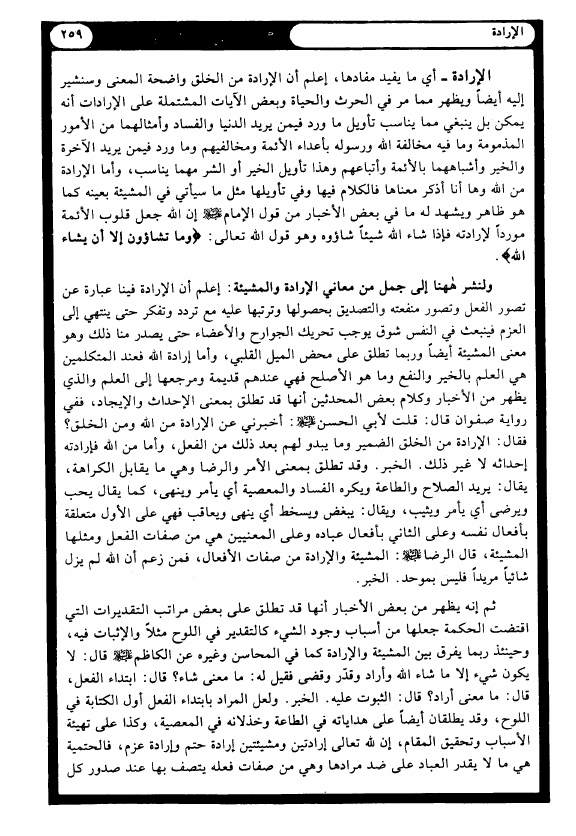 الإرادة
٢٥٩
الإرادة ـ أي ما يفيد مفادها، إعلم أن الإرادة من الخلق واضحة المعنى وسنشير
إليه أيضاً ويظهر مما مر في الحرث والحياة وبعض الآيات المشتملة على الإرادات أنه
يمكن بل ينبغي مما يناسب تأويل ما ورد فيمن يريد الدنيا والفساد وأمثالهما من الأمور
المذمومة وما فيه مخالفة الله ورسوله بأعداء الأئمة ومخالفيهم وما ورد فيمن يريد الآخرة
والخير وأشباههما بالأئمة وأتباعهم وهذا تأويل الخير أو الشر مهما يناسب، وأما الإرادة
من الله وها أنا أذكر معناها فالكلام فيها وفي تأويلها مثل ما سيأتي في المشيئة بعينه كما
هو ظاهر ويشهد له ما في بعض الأخبار من قول الإمام ﷺ إن الله جعل قلوب الأئمة
مورداً لإرادته فإذا شاء الله شيئاً شاؤوه وهو قول الله تعالى: ﴿وما تشاؤون إلا أن يشاء
الله﴾.
ولنشر ههنا إلى جمل من معاني الإرادة والمشيئة: إعلم أن الإرادة فينا عبارة عن
تصور الفعل وتصور منفعته والتصديق بحصولها وترتبها عليه مع تردد وتفكر حتى ينتهي إلى
العزم فينبعث في النفس شوق يوجب تحريك الجوارح والأعضاء حتى يصدر منا ذلك وهو
معنى المشيئة أيضاً وربما تطلق على محض الميل القلبي، وأما إرادة الله فعند المتكلمين
هي العلم بالخير والنفع وما هو الأصلح فهي عندهم قديمة ومرجعها إلى العلم والذي
يظهر من الأخبار وكلام بعض المحدثين أنها قد تطلق بمعنى الإحداث والإيجاد، ففي
رواية صفوان قال: قلت لأبي الحسن ﷺ: أخبرني عن الإرادة من الله ومن الخلق؟
فقال: الإرادة من الخلق الضمير وما يبدو لهم بعد ذلك من الفعل، وأما من الله فإرادته
إحداثه لا غير ذلك. الخبر. وقد تطلق بمعنى الأمر والرضا وهي ما يقابل الكراهة،
يقال: يريد الصلاح والطاعة ويكره الفساد والمعصية أي يأمر وينهى، كما يقال يحب
ويرضى أي يأمر ويثيب، ويقال: يبغض ويسخط أي ينهى ويعاقب فهي على الأول متعلقة
بأفعال نفسه وعلى الثاني بأفعال عباده وعلى المعنيين هي من صفات الفعل ومثلها
المشيئة، قال الرضا ﷺ: المشيئة والإرادة من صفات الأفعال، فمن زعم أن الله لم يزل
شائياً مريداً فليس بموحد. الخبر.
ثم إنه يظهر من بعض الأخبار أنها قد تطلق على بعض مراتب التقديرات التي
اقتضت الحكمة جعلها من أسباب وجود الشيء كالتقدير في اللوح مثلاً والإثبات فيه،
وحينئذ ربما يفرق بين المشيئة والإرادة كما في المحاسن وغيره عن الكاظم ﷺ قال: لا
يكون شيء إلا ما شاء الله وأراد وقدّر وقضى فقيل له: ما معنى شاء؟ قال: ابتداء الفعل،
قال: ما معنى أراد؟ قال: الثبوت عليه. الخبر. ولعل المراد بابتداء الفعل أول الكتابة في
اللوح، وقد يطلقان أيضاً على هداياته في الطاعة وخذلانه في المعصية، وكذا على تهيئة
الأسباب وتحقيق المقام، إن لله تعالى إرادتين ومشيئتين إرادة حتم وإرادة عزم، فالحتمية
هي ما لا يقدر العباد على ضد مرادها وهي من صفات فعله يتصف بها عند صدور كل